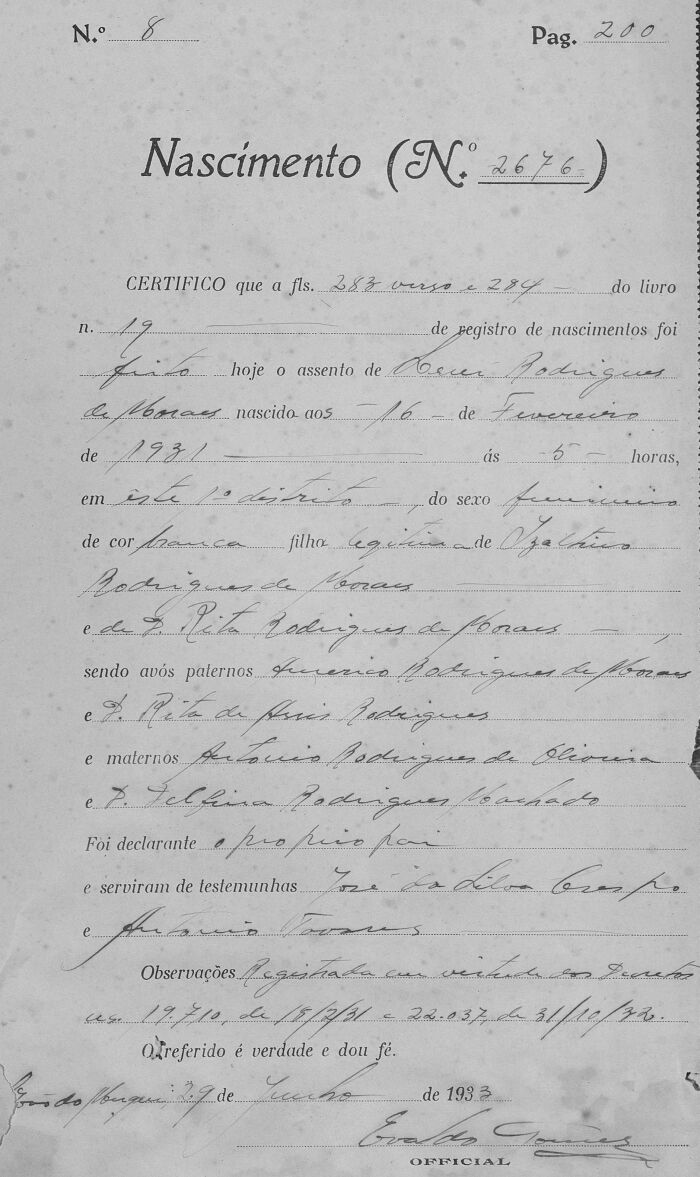 N.º 8 Pag. 200
Nascimento (N.º 2676)
CERTIFICO que a fls. 283 verso e 284 — do livro
n. 19 — de registro de nascimentos foi
feito hoje o assento de Rodrigues
de Moraes nascido aos — 16 — de Fevereiro
de 1931 — ás — 5 — horas,
em êste 1º distrito —, do sexo feminino
de cor branca filha legitima de Izaltino
Rodrigues de Moraes —
e de D. Rita Rodrigues de Moraes — ,
sendo avós paternos Americo Rodrigues de Moraes
e D. Rita de Assis Rodrigues
e maternos Antonio Rodrigues de Oliveira
e D. Delfina Rodrigues Machado
Foi declarante o proprio pai
e serviram de testemunhas José da Silva Crespo
e Antonio Tavares —
Observações Registrada em virtude dos Decretos
ns. 19.710, de 18/2/31 e 22.037, de 31/10/32.
O referido é verdade e dou fé.
29 de Junho de 1933
Evaldo Gomes
OFFICIAL